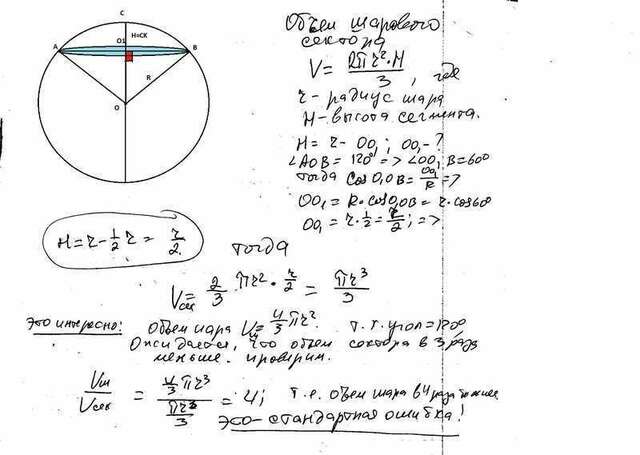 C
O1
H=CK
A
B
R
O
Объем шарового
сектора
V = 2πr²·H / 3, где
r - радиус шара
H - высота сегмента.
H = r - OO₁; OO₁ - ?
∠AOB = 120° => ∠OO₁B = 60°
тогда cos O₁OB = OO₁/R =>
OO₁ = R·cos O₁OB = r·cos 60
OO₁ = r·1/2 = r/2; =>
H = r - 1/2 r = r/2.
тогда
Vсек = 2/3 πr²·r/2 = πr³/3
Это интересно: Объем шара Vш = 4/3 πr². т.т. угол = 120°
Ожидается, что объем сектора в 3 раза
меньше. проверим.
Vш/Vсек = 4/3 πr³ / πr³/3 = 4; т.е. объем шара в 4 раза
Это - стандартная ошибка!